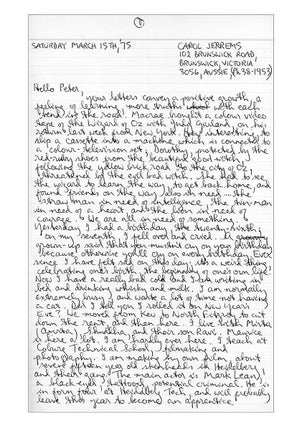 SATURDAY MARCH 15TH, '75
CAROL JERREMS
102 BRUNSWICK ROAD,
BRUNSWICK, VICTORIA
3056, AUSSIE (Ph.38-1953)
Hello Peter,
your letters convey positive growth, a
feeling of learning more truths with each
bend in the road. Macrae brought a colour video
tape of the Wizard of Oz with Judy Garland, on his
return last week from New York. Very interesting to
slip a cassette into a machine, which is connected to
a colour television set; Dorothy, protected by the
red-ruby shoes from the beautiful good witch,
following the yellow brick road to the city of Oz,
threatened by the evil bad witch. She had to see
the wizard to learn the way to get back home, and
found friends on the way also in need - the
straw man in need of intelligence, the tin-man
in need of a heart, and the lion in need of
courage. We are all in need of something.
Yesterday I had a birthday, the twenty-sixth;
on my seventh, I fell over and cried. A
grown-up said that you mustn't cry on your birthday
because otherwise you'll cry on every birthday. Ever
since I have felt sad on that day; it's a weird thing
celebrating one's birth, the beginning of one's own life!
Now I have a really bad cold and I'm writing in
bed and drinking whisky and milk. I am normally
extremely busy, and waste a lot of time not having
a car. Did I tell you I rolled it on New Year's
Eve? We moved from Kew to North Fitzroy to cut
down the rent and then here. I live with
and their son Ravi. Macrae
is here a lot. I am hardly ever here. I teach at
Coburg Technical School, filmmaking and
photography. I am making my own film, about
several fifteen year old skinheads in Heidelberg
and their gang. The main actor is Mark Lean,
a black-eyed, tattooed, potential criminal. He is
in form four at Heidelberg Tech, and will probably
leave this year to become an apprentice